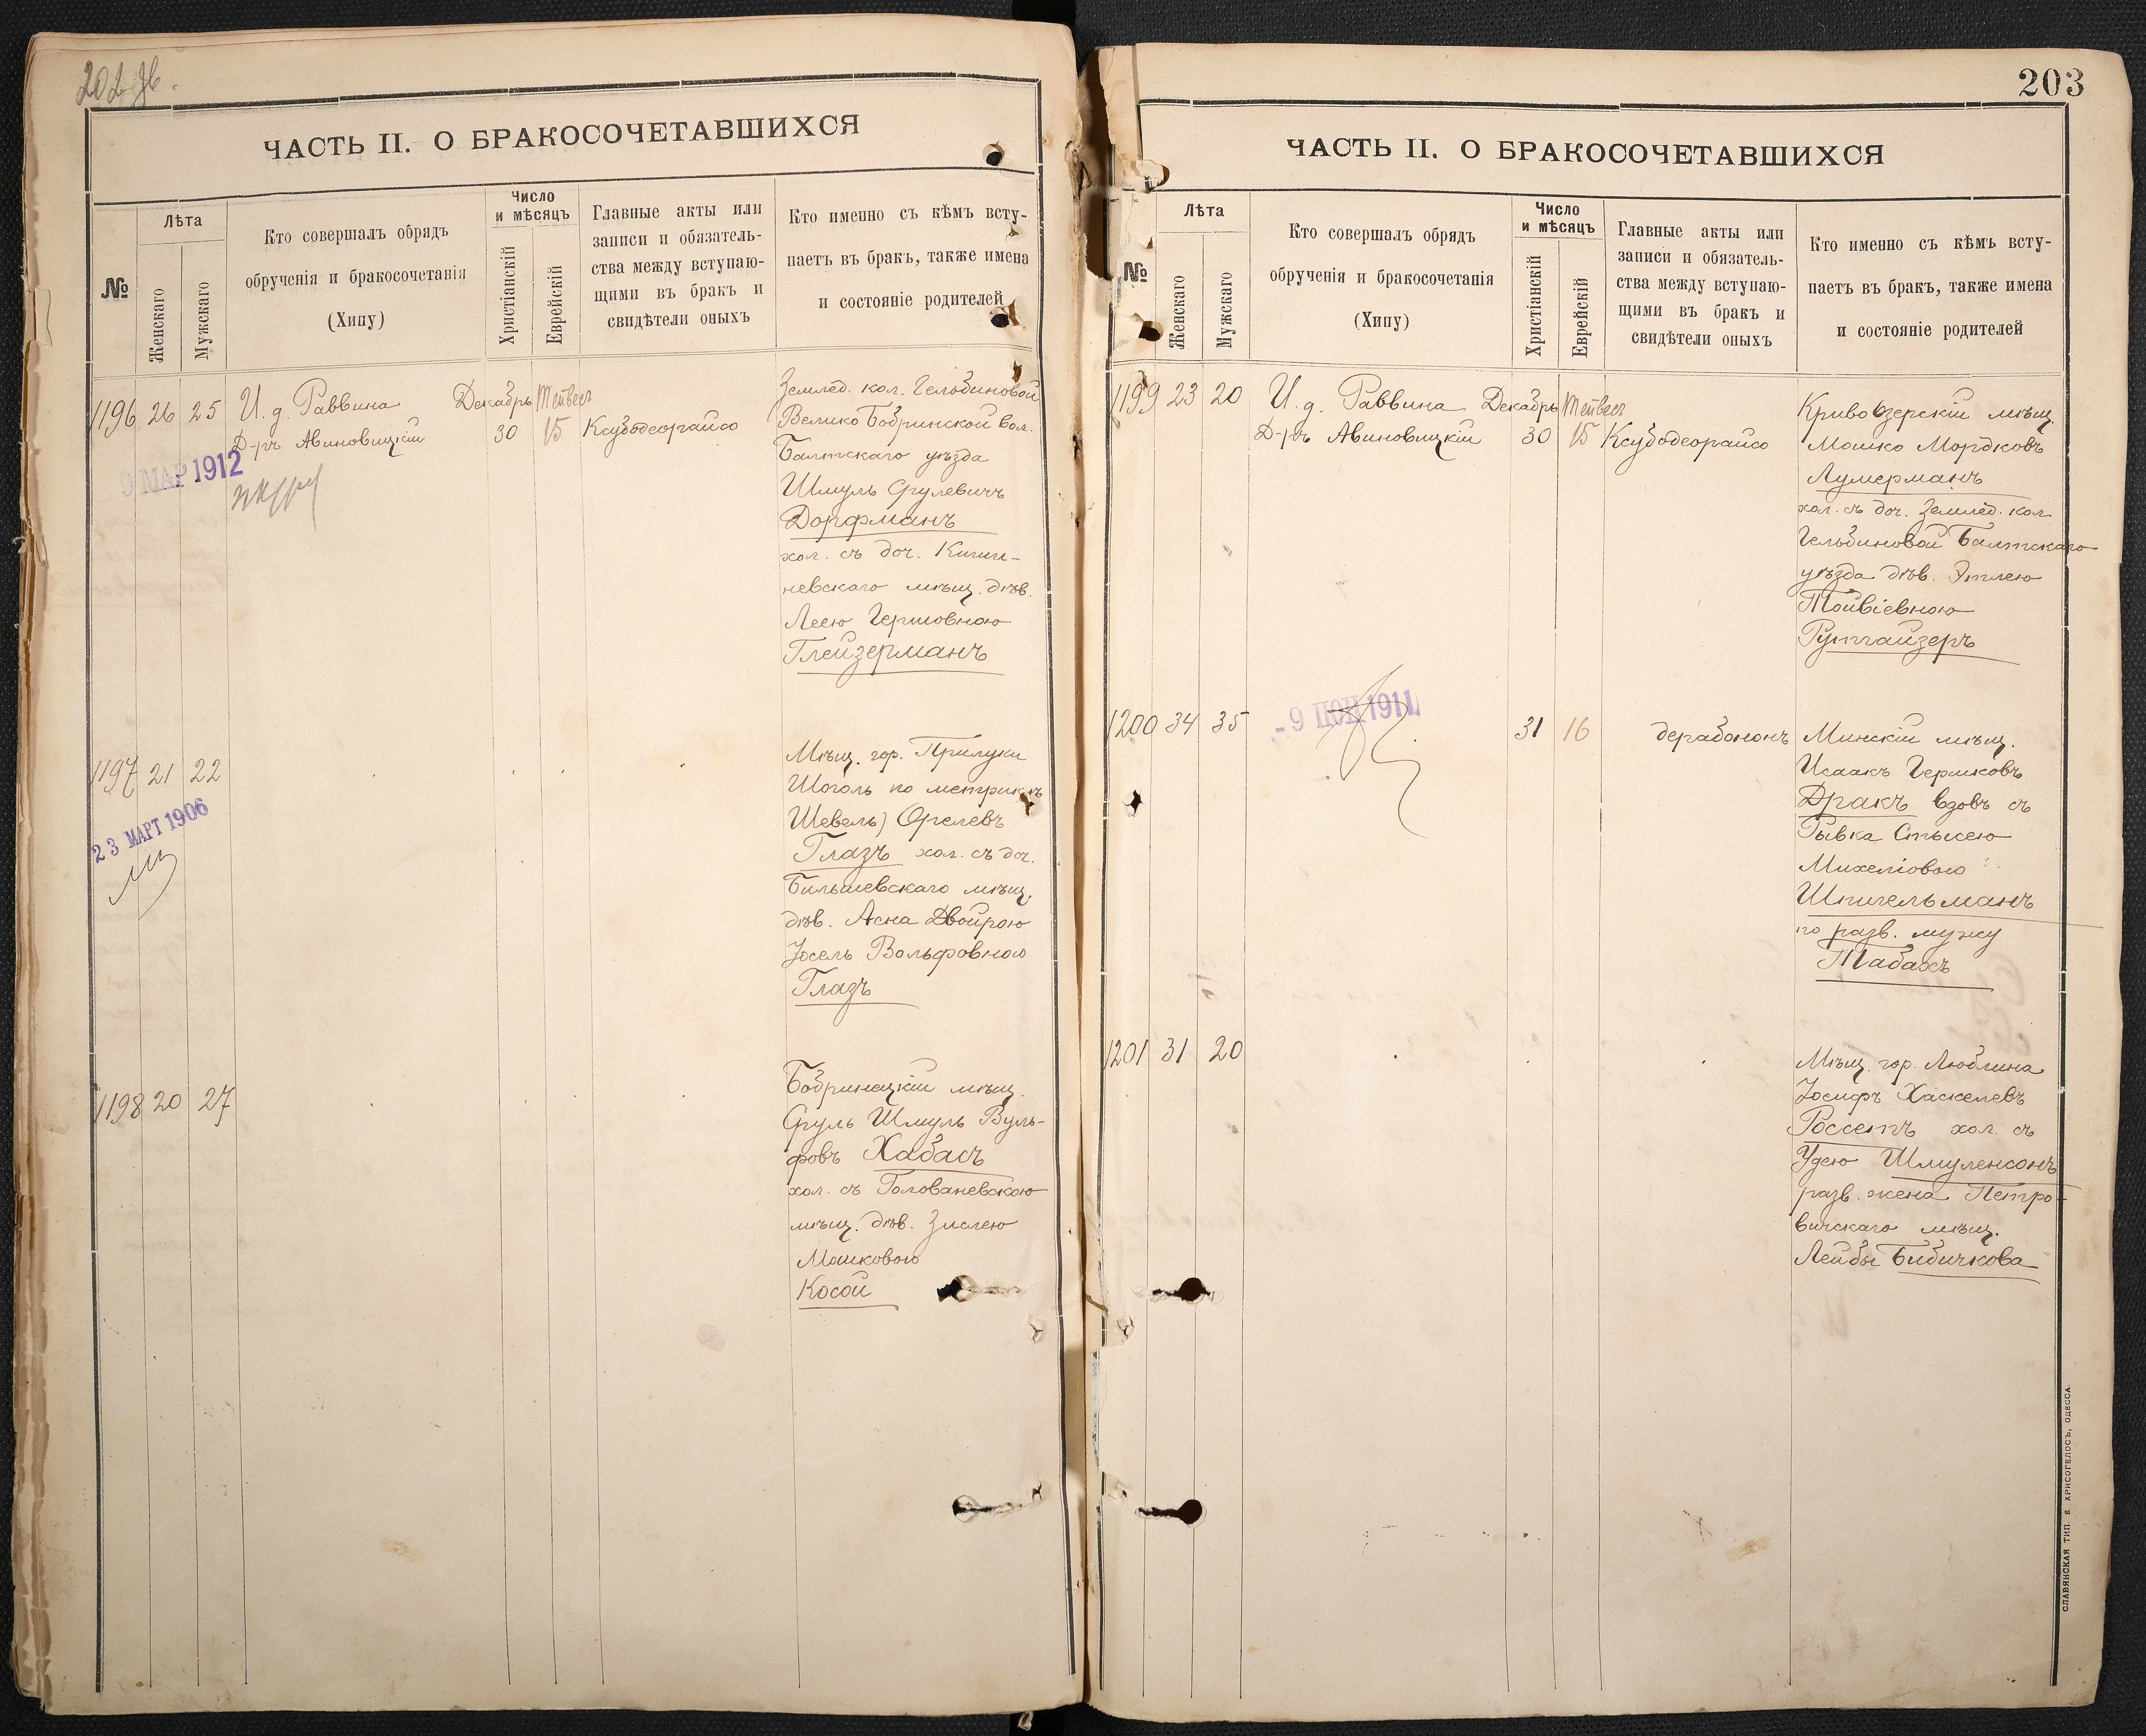 202 об.
ЧАСТЬ II. О БРАКОСОЧЕТАВШИХСЯ
№
Лѣта
Женскаго
Мужскаго
Кто совершалъ обрядъ
обрученія и бракосочетанія
(Хипу)
Число
и мѣсяцъ
Христіанскій
Еврейскій
Главные акты или
записи и обязатель-
ства между вступаю-
щими въ бракъ и
свидѣтели оныхъ
Кто именно съ кѣмъ всту-
паетъ въ бракъ, также имена
и состояніе родителей
1196 26 25 И. д. Раввина Декабрь Тейвесъ
Д-ръ Авиновицкій 30 15 Ксубодеорайсо
9 МАР 1912
Землед. кол. Гельбиновой
Велико Бобринской вол.
Балтскаго уѣзда
Шмуль Срулевичъ
Дорфманъ
хол. съ доч. Киши-
невскаго мѣщ. дѣв.
Леею Гершовною
Глейзерманъ
1197 21 22
23 МАРТ 1906
Мѣщ. гор. Прилуки
Шоголь по метрикѣ
Шевель) Орелевъ
Глазъ хол. съ доч.
Бильшевскаго мѣщ.
дѣв. Асна Двойрою
Іосель Вольфовною
Глазъ
1198 20 27
Бобринецкій мѣщ.
Сруль Шмуль Вуль-
фовъ Хабасъ
хол. съ Голованевскою
мѣщ. дѣв. Зислею
Мошковою
Косой
203
ЧАСТЬ II. О БРАКОСОЧЕТАВШИХСЯ
№
Лѣта
Женскаго
Мужскаго
Кто совершалъ обрядъ
обрученія и бракосочетанія
(Хипу)
Число
и мѣсяцъ
Христіанскій
Еврейскій
Главные акты или
записи и обязатель-
ства между вступаю-
щими въ бракъ и
свидѣтели оныхъ
Кто именно съ кѣмъ всту-
паетъ въ бракъ, также имена
и состояніе родителей
1199 23 20 И. д. Раввина Декабрь Тейвесъ
Д-ръ Авиновицкій 30 15 Ксубодеорайсо
Криво Озерскій мѣщ.
Мошко Мордковъ
Лумерманъ
хол. съ доч. Землед. кол.
Гельбиновой Балтскаго
уѣзда дѣв. Этлею
Тойвіевною
Рутгайзеръ
1200 34 35
31 16 дерабононъ
Минскій мѣщ.
Исаакъ Гершковъ
Дракъ вдовъ съ
Рывка Стысею
Михеліовою
Шпигельманъ
по разв. мужу
Табахъ
1201 31 20
Мѣщ. гор. Люблина
Іосифъ Хаскелевъ
Россетъ хол. съ
Удею Шмуленсонъ
разв. жена Петро-
вичскаго мѣщ.
Лейбы Бибичкова
СЛАВЯНСКАЯ ТИП. Е. ХРИСОГЕЛОСЪ, ОДЕССА.